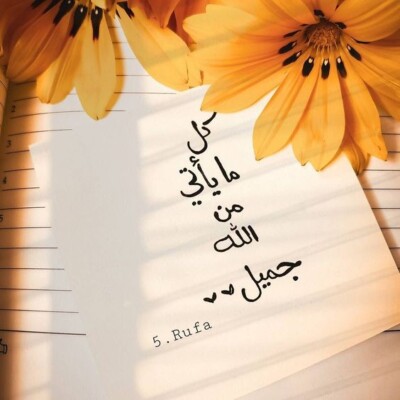 كل
ما يأتي
من
الله
جميل ♥♥
5.Rufa